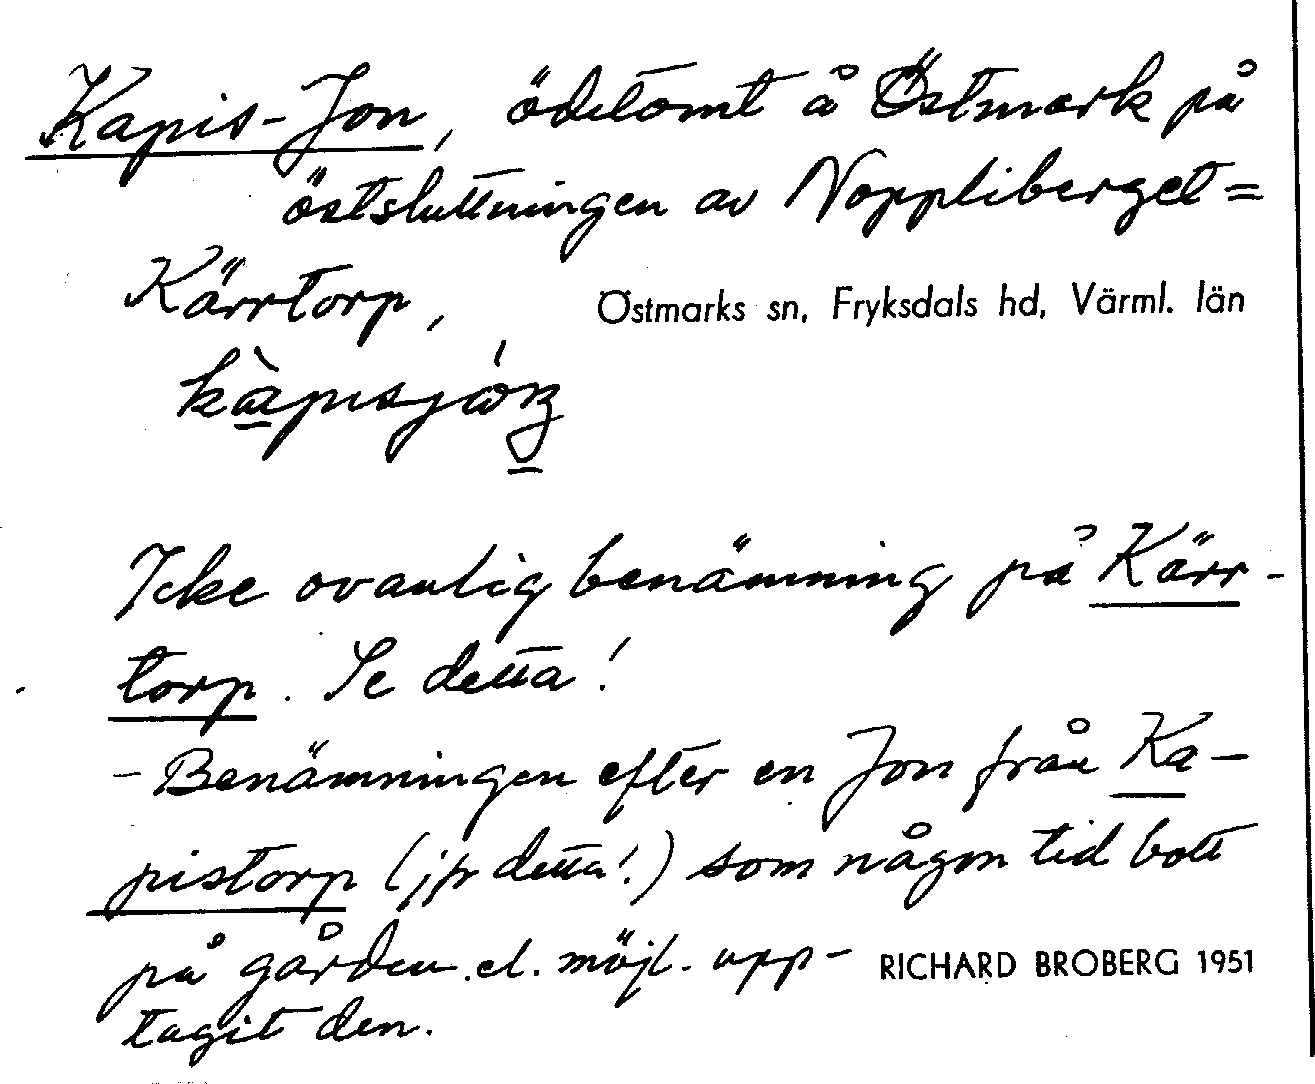 Kapis-Jon, ödetomt å Östmark på
östsluttningen av Noppliberget=
Kärrtorp,
Östmarks sn, Fryksdals hd, Värml. län
Icke ovanlig benämning på Kärr-
torp. Se detta!
- Benämningen efter en Jon från Ka-
pistorp (jfr detta!) som någon tid bott
på gården el. möjl. upp-
RICHARD BROBERG 1951
tagit den.